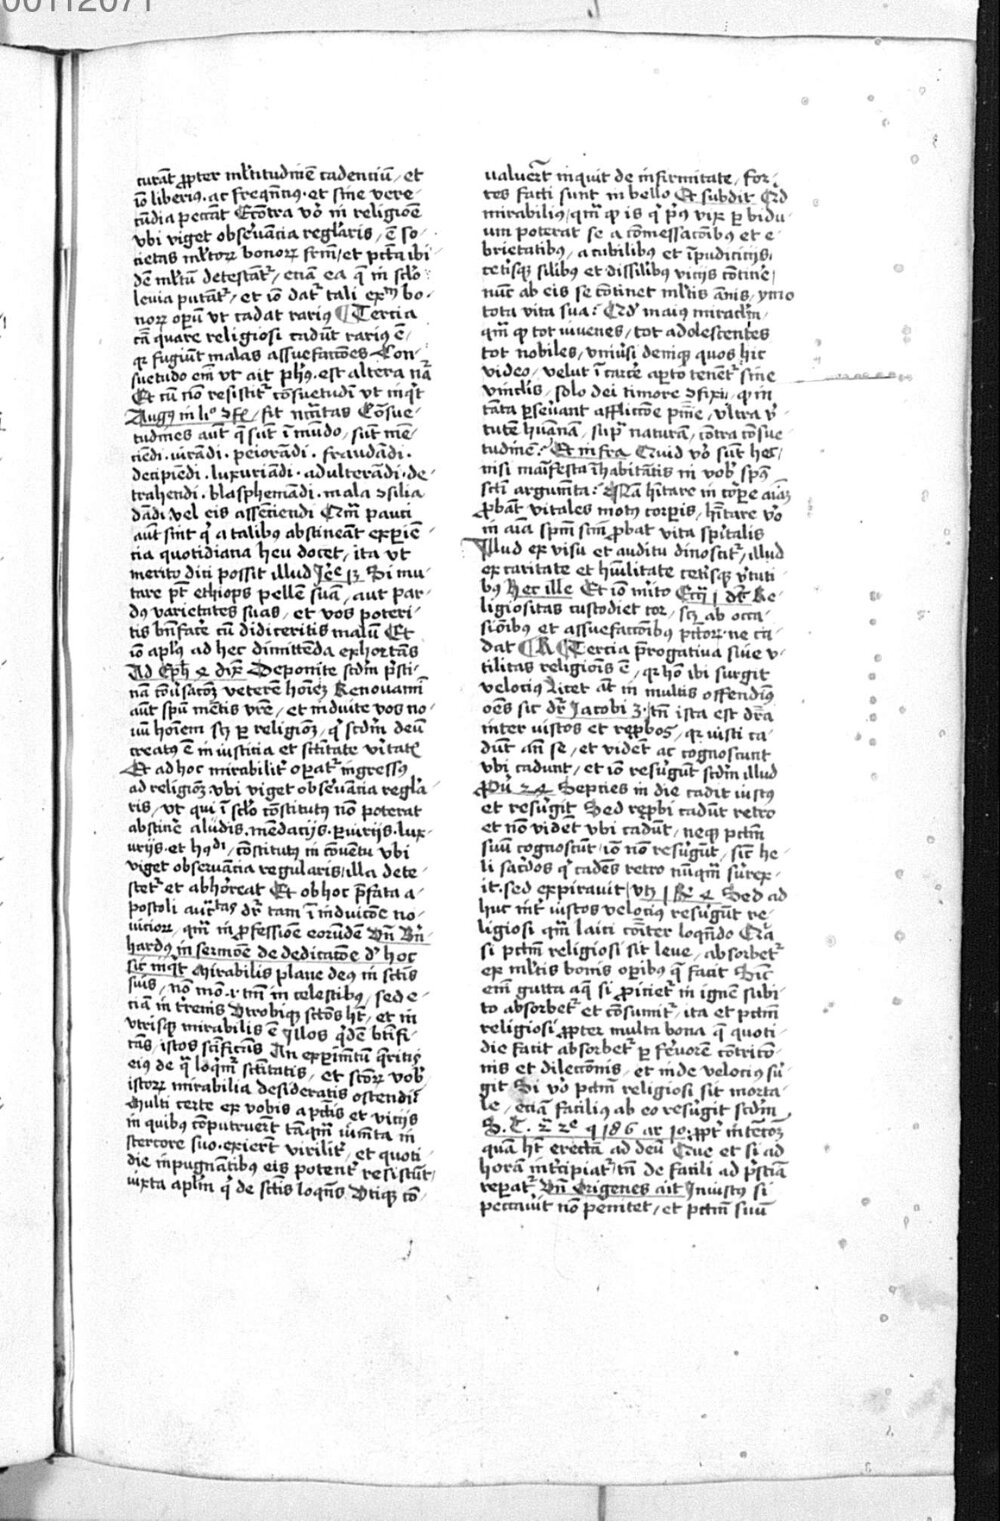 00112071
curāt ꝓpter ml̓titudinē cadenciū / et
iō liberiꝰ · ac freqn̄tiꝰ · et sine vere-
cūdia peccāt Ecōtra vo̓ in religiōe
vbi viget obẜeuācia reglaris / ē so-
cietas ml̓torꝝ bonorꝝ / et pctā ibi-
dē ml̓tū detestat̄ / eciā ea q̄ in sclo
leuia putāt̄ / et iō dat̄ tali bo-
norꝝ operū vt cadat rarius Tercia
cā quare religiosi cadūt rarius ē /
qꝛ fugiūt malas assuefactōes Con-
suetudo em̄ vt ait ph̄s · est altera na̅
Et cū nō resistit̄ cōsuetudi vt inq̓t
Augꝰ in li° ɔfeſ / fit nccītas Cōsue-
tudines aūt q̄ sūt ī mūdo / sūt mē-
ciēdi · iurādi · peiorādi · fraudādi ·
decipiēdi · luxuriādi · adulterādi · de-
trahendi · blasphemādi · mala ɔsilia
dādi vel eis assenciendi Cum pauci
aūt sint q̓ a talibꝰ abstineāt experiē-
cia quotidiana heu docet / ita vt
merito dici possit illud Jere 13 Si mu-
tare pt̄ ethiops pellē suā / aut par-
dꝰ varietates suas / et vos poteri-
tis bn̄facere cū didiceritis malū Et
iō apl̓us ad hec dimittēda exhortās
Ad Eph̄ 4 dix̄ Deponite scdm̄ p̓sti-
nā cōu̓sacōꝫ veterē hoīeꝫ Renouamī
aūt spū mētis vr̄e / et induite vos no-
uū hoīem scꝫ ꝑ religiōꝫ / q̓ scdm̄ deū
creatꝰ ē in iusticia et sc̄titate vi̓tatꝭ
Et ad hoc mirabilit̓ oꝑat̄ ingressꝰ
ad religiōꝫ vbi viget obẜeuācia regla-
ris / vt qui ī sclo cōstitutꝰ nō poterat
abstinē a ludis · mēdacijs · ꝑiurijs · lux-
urijs · et hꝰdi / cōstitutꝰ in cōuētu vbi
viget obseruācia regularis / illa dete-
stet̄ et abhorreat Et ob hoc p̄fata a-
postoli auctītas dr̄ tam ī induicōe no-
uiciorꝝ / qm̄ in ꝓfessiōe eorūdē Vn̄ Bn̄-
hardꝰ in sermōe de dedicatōe d̓ hoc
sic inq̓t Mirabilis plane deꝰ in sctis
suis / nō mō · r tm̄ in celestibꝰ / sed e-
ciā in t̓renis Vtrobiqꝫ sctōs hꝫ / et in
vtrisqꝫ mirabilis ē Illos q̓dē bt̄ifi-
cās / istos sctificās An experimētū q̓ritis
eiꝰ de q̓ loq̓mr̄ sctitatis / et sctōrꝝ vob̓
istorꝝ mirabilia desideratis ostendi
Multi certe ex vobis a pctīs et vicijs
in quibꝰ cōputruerūt tāqm̄ iumēta in
stercore suo · exierūt virilit̓ / et quoti-
die inpugnātibus eis potent̓ resistūt /
iuxta aplm̄ q̓ de sctīs loqn̄s Vtiqꝫ cō-
ualuerūt inquit de infirmitate / for-
tes facti sunt in bello Et subdit Qd̓
mirabiliꝰ / qm̄ ꝙ is q̓ p̓ꝰ vix ꝑ bidu-
um poterat se a cōmessacōibꝰ et e-
brietatibꝰ / a cubilibꝰ et īpudicicijs
cet̓isqꝫ silibꝰ et dissilibꝰ vicijs cōtinē /
nūc ab eis se cōtinet ml̓tis ānis / ymo
tota vita sua? Qd̓ maius miraclm̄ /
qm̄ ꝙ tot iuuenes / tot adolescentes
tot nobiles / vniu̓si deniqꝫ quos hic
video / velut ī carce̓ aꝑto tenēt̄ sine
vinclis / solo dei timore ɔfixi / ꝙ in
tāta ꝑseuerāt afflictōe pnīe / vltra v̓-
tutē hūanā / sup̄ naturā / cōtra cōsue-
tudinē? Et infra Quid vo̓ sūt hec /
nisi maīfesta īhabitātis in vob̓ spūs
scti argumēta? Nā hītare in corꝑe aīaꝫ
ꝓbāt vitales motꝰ corꝑis / hītare vo̓
in aīa spm̄ scm̄ ꝓbat vita spiritalis
Illud ex visu et auditu dinoscit̄ / illud
ex caritate et hūilitate cet̓isqꝫ v̓tuti-
bꝰ Hec ille Et iō mito Eccī 1 dr̄ Re-
ligiositas custodiet cor / scꝫ ab occa-
siōibꝰ et assuefactiōibꝰ pctorꝝ · ne ca-
dat Tercia p̄rogatiua siue v-
tilitas religiōis ē / qꝛ hō ibi surgit
velociꝰ Licet āt in multis offendimꝰ
oēs sic dr̄ Jacobi 3 · tn̄ ista est dr̄a
inter iustos et reꝓbos / qꝛ iusti ca-
dūt an̄ se / et vidēt ac cognoscunt
vbi cadunt / et iō resu̓gūt scdm̄ illud
Prou̓ 24 Septies in die cadit iustꝰ
et resu̓git Sed reꝓbi cadūt retro
et nō vidēt vbi cadūt / neqꝫ pctm̄
suū cognoscūt / iō nō resu̓gūt / sic he-
li sac̓dos q̓ cadēs retro nūqm̄ surex-
it · sed expirauit / vt 1 R̄ 4 Sed ad
huc int̓ iustos velociꝰ resu̓gūt re-
ligiosi qm̄ laici cōīter loqn̄do Qꝛ
si pctm̄ religiosi sit leue / absorbet̄
ex ml̓tis bonis oꝑibꝰ q̄ facit Sic
em̄ gutta aq̄ si ꝓiciet̄ in ignē subi-
to absorbet̄ et cōsumit̄ / ita et pctm̄
religiosi ꝓpter multa bona q̄ quoti-
die facit absorbet̄ ꝑ feruorē cōtricō-
nis et dilectōnis / et inde velociꝰ su̓-
git Si vo̓ pctm̄ religiosi sit morta-
le / eciā faciliꝰ ab eo resu̓git scdm̄
S. T. 2ª 2e q 186 ar 10 / ꝓpt̓ intencōꝫ
quā hꝫ erectā ad deū Que et si ad
horā int̓cipiat̄ / tn̄ de facili ad p̓stinā
reꝑat̄ Vn̄ Origenes ait Iniustꝰ si
peccauit nō penitet / et pctm̄ suū